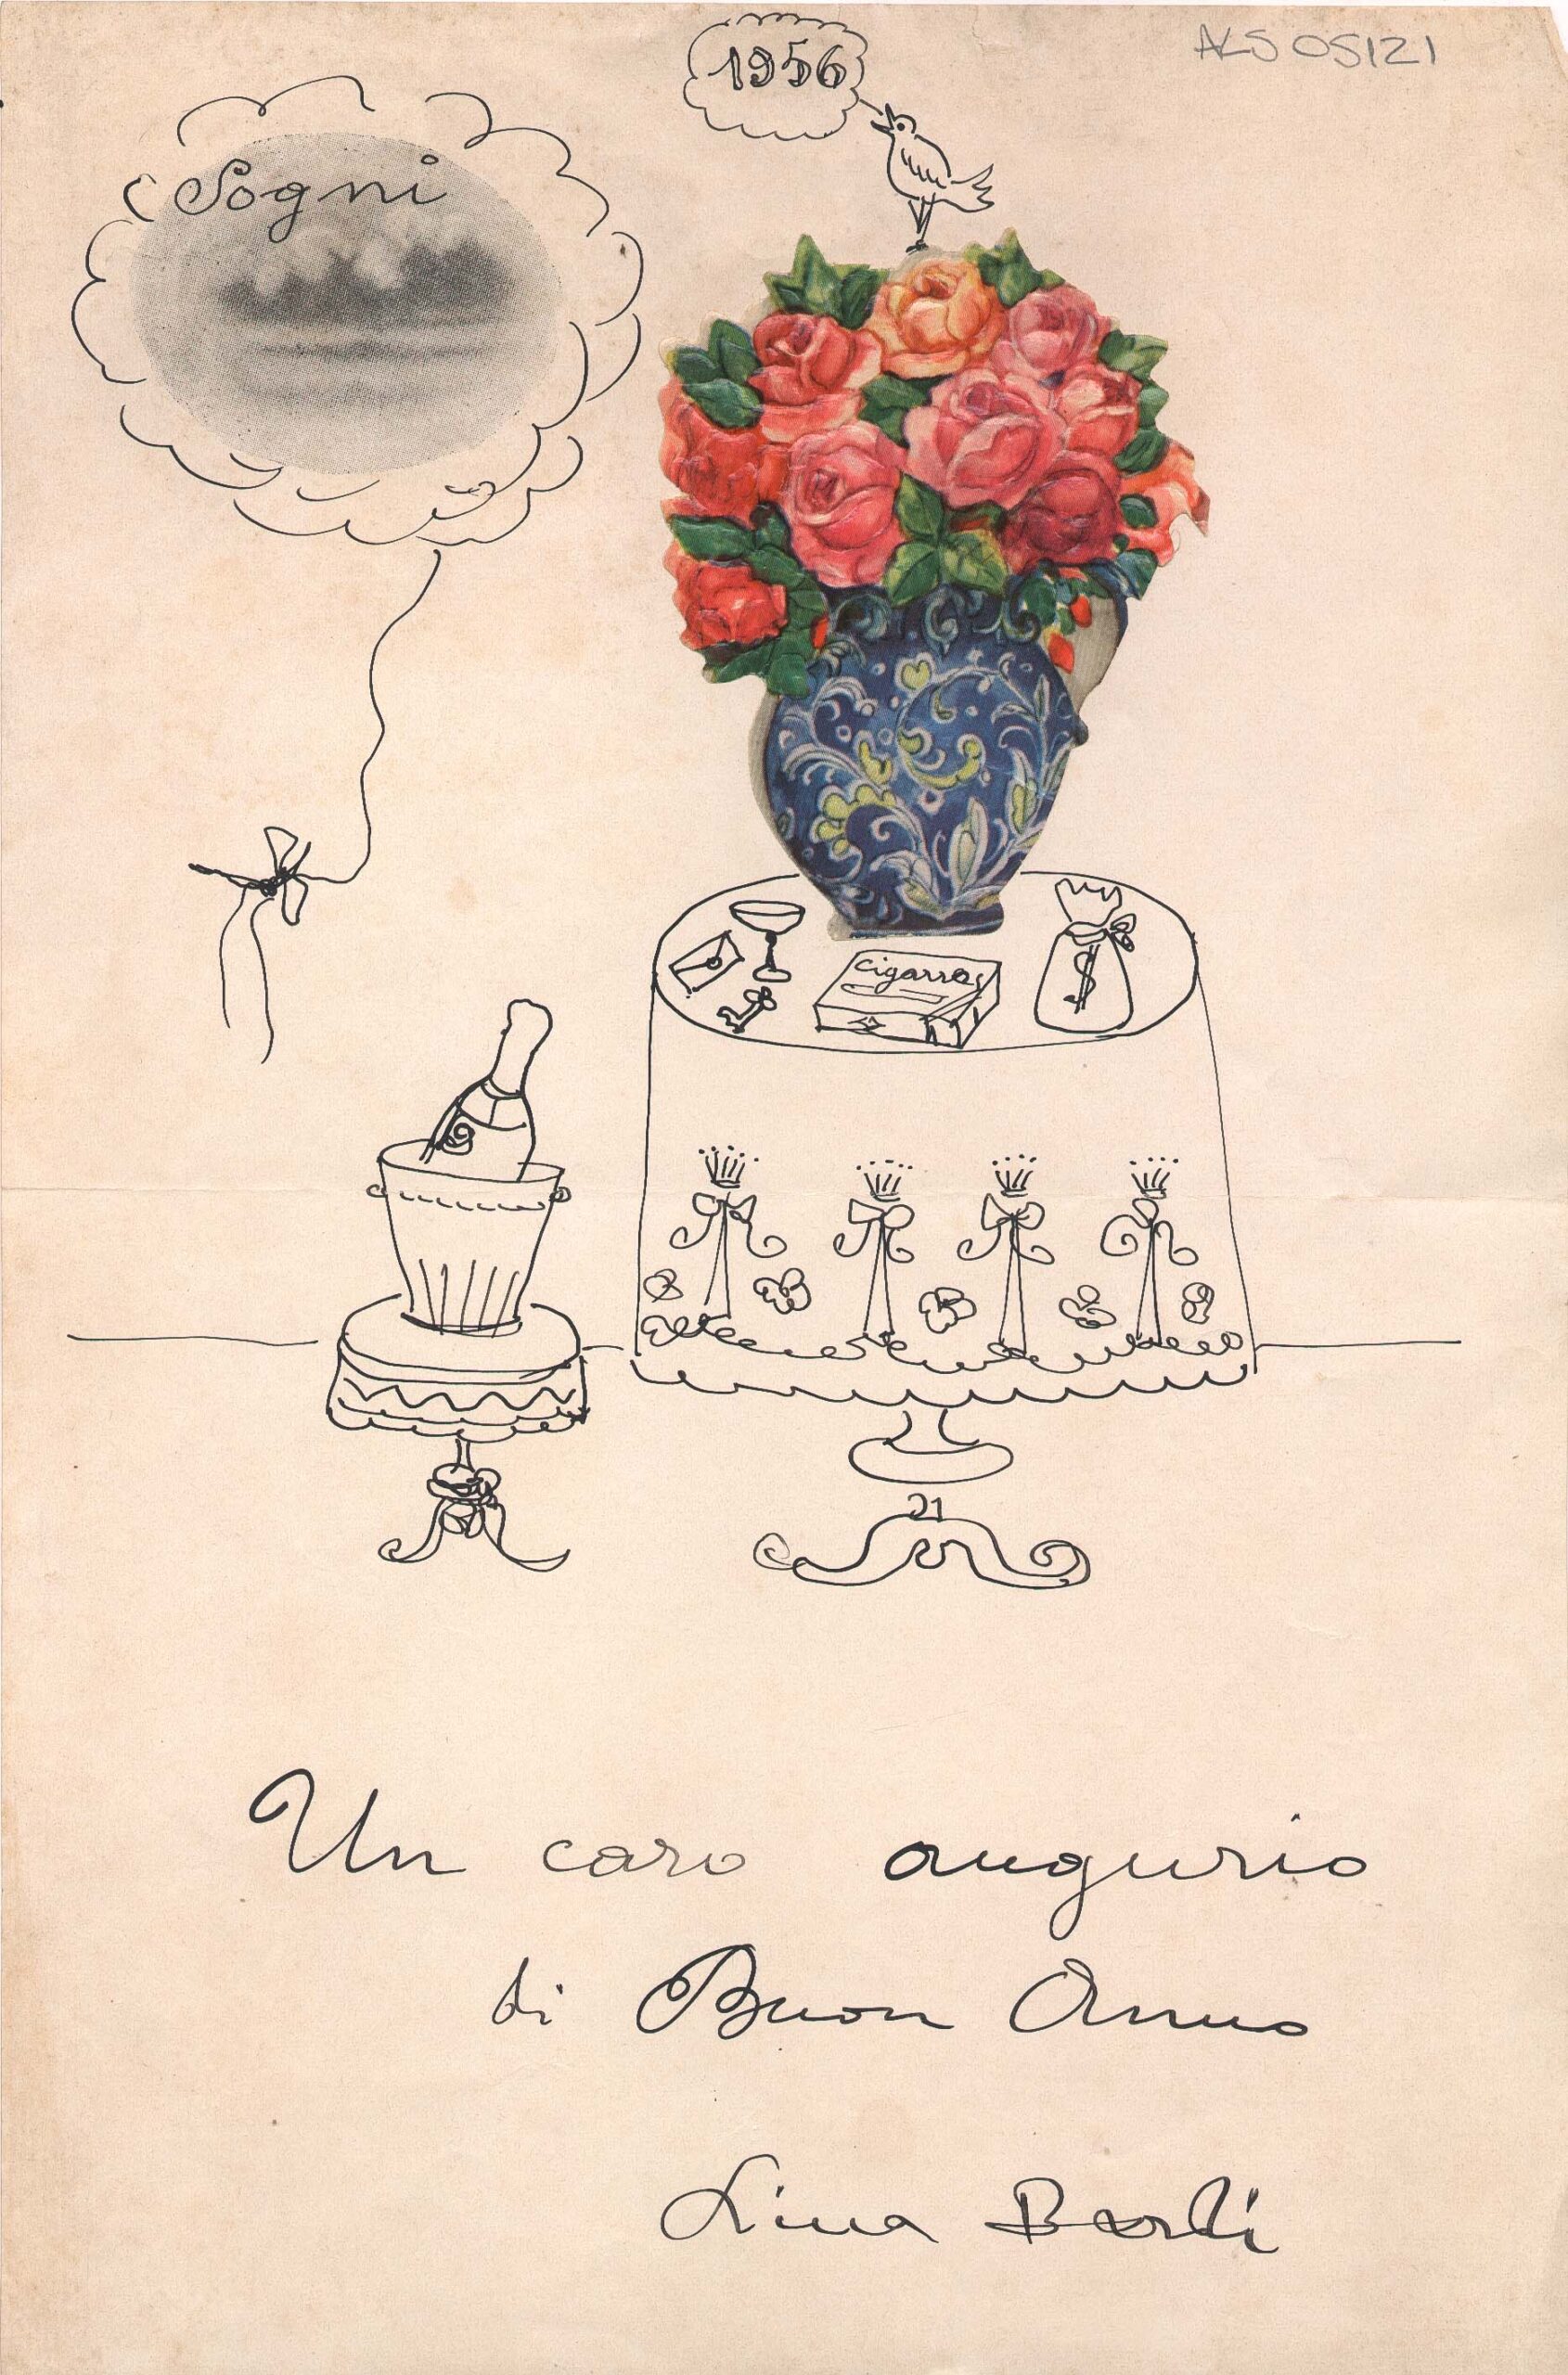 1956
ALS 05121
Sogni
cigarros
$
Un caro augurio
di Buon Anno
Lina